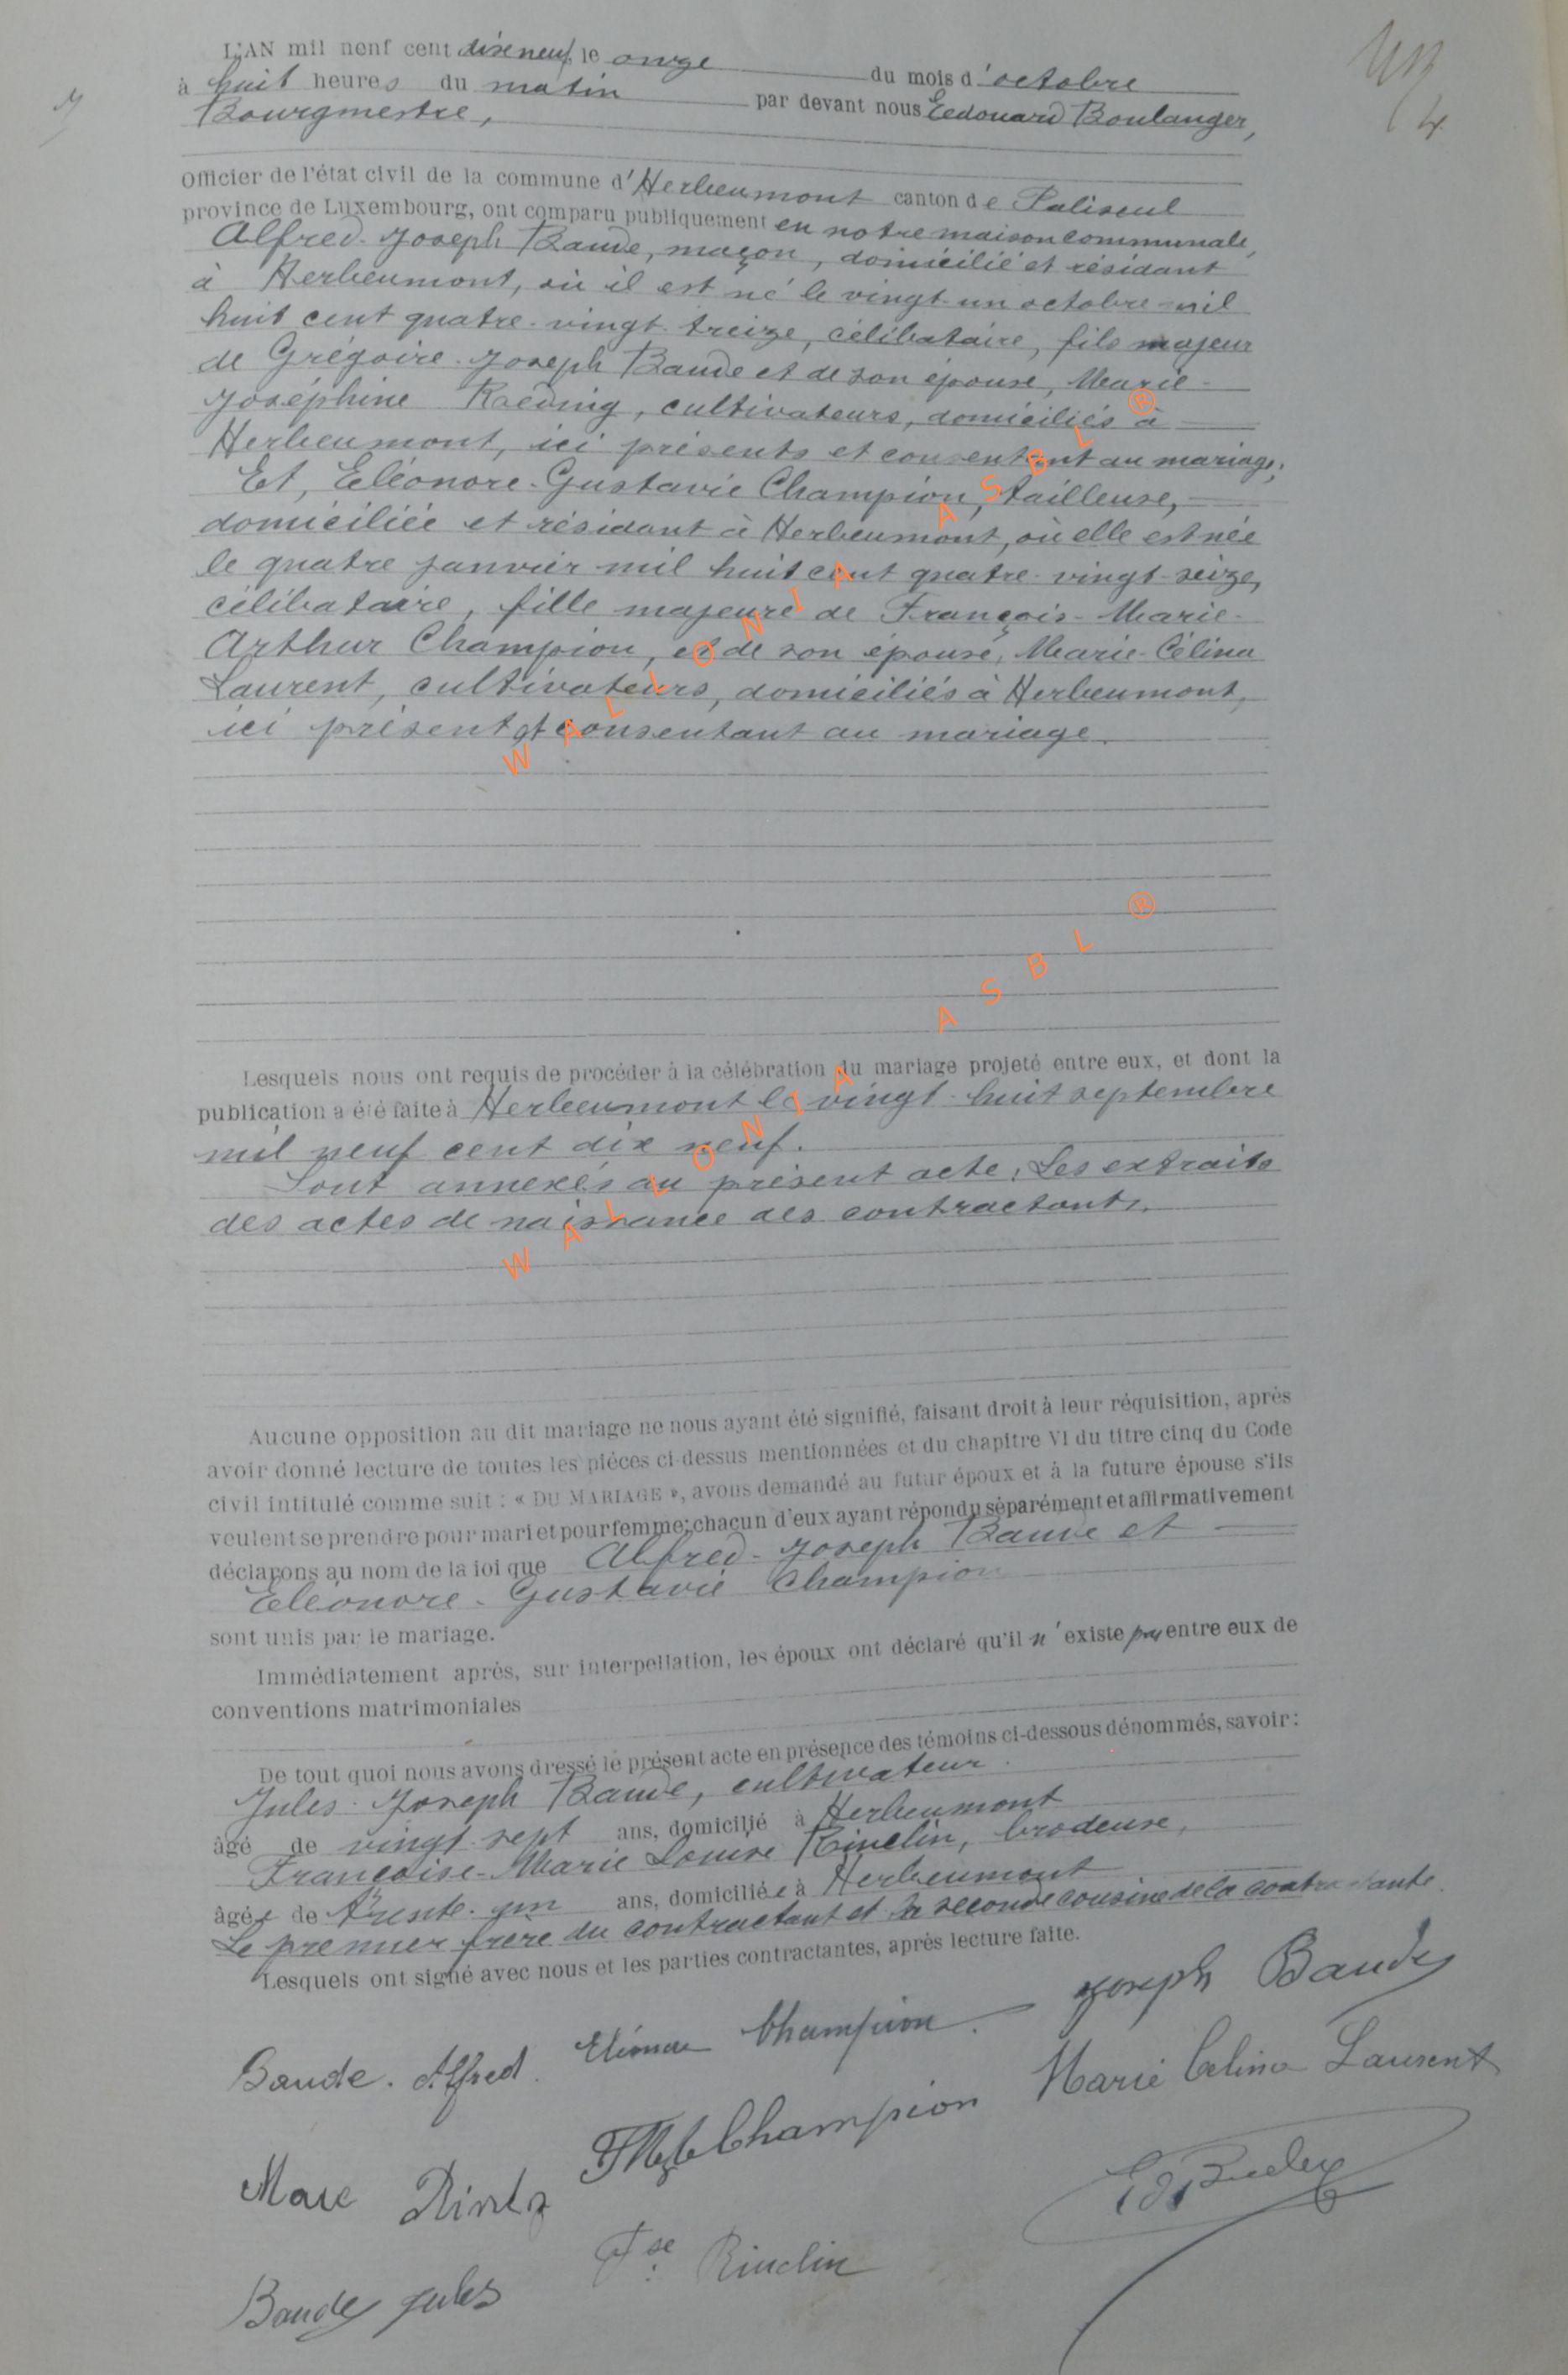 L'AN mil neuf cent dix neuf, le onze du mois d'octobre
à huit heures du matin par devant nous Eedouard Boulanger,
Bourgmestre,
Officier de l'état civil de la commune d'Herbeumont canton de Paliseul
province de Luxembourg, ont comparu publiquement en notre maison communale,
Alfred-Joseph Baude, maçon, domicilié et résidant
à Herbeumont, où il est né le vingt-un octobre mil
huit cent quatre-vingt-treize, célibataire, fils majeur
de Grégoire-Joseph Baude et de son épouse, Marie-
Joséphine Roeding, cultivateurs, domiciliés à
Herbeumont, ici présents et consentant au mariage;
Et, Eléonore-Gustavie Champion, tailleuse,
domiciliée et résidant à Herbeumont, où elle est née
le quatre janvier mil huit cent quatre-vingt-seize,
célibataire, fille majeure de François-Marie-
Arthur Champion, et de son épouse, Marie-Célina
Laurent, cultivateurs, domiciliés à Herbeumont,
ici présent et consentant au mariage.
WALLONIA ASBL ®
Lesquels nous ont requis de procéder à la célébration du mariage projeté entre eux, et dont la
publication a été faite à Herbeumont le vingt-huit septembre
mil neuf cent dix neuf.
Sont annexés au présent acte: Les extraits
des actes de naissance des contractants.
WALLONIA ASBL ®
Aucune opposition au dit mariage ne nous ayant été signifié, faisant droit à leur réquisition, après
avoir donné lecture de toutes les pièces ci-dessus mentionnées et du chapitre VI du titre cinq du Code
civil intitulé comme suit : « DU MARIAGE », avons demandé au futur époux et à la future épouse s'ils
veulent se prendre pour mari et pour femme; chacun d'eux ayant répondu séparément et affirmativement
déclarons au nom de la loi que Alfred-Joseph Baude et
Eléonore-Gustavie Champion
sont unis par le mariage.
Immédiatement après, sur interpellation, les époux ont déclaré qu'il n'existe pas entre eux de
conventions matrimoniales
De tout quoi nous avons dressé le présent acte en présence des témoins ci-dessous dénommés, savoir:
Jules-Joseph Baude, cultivateur
âgé de vingt-sept ans, domicilié à Herbeumont
Françoise-Marie Louise Rinclin, brodeuse,
âgée de trente-un ans, domiciliée à Herbeumont
Le premier frère du contractant et la seconde cousine de la contractante.
Lesquels ont signé avec nous et les parties contractantes, après lecture faite.
Joseph Baude
Baude. Alfred. Eléonore Champion.
Marie Celina Laurent
Champion
Baude Jules Fse Rinclin